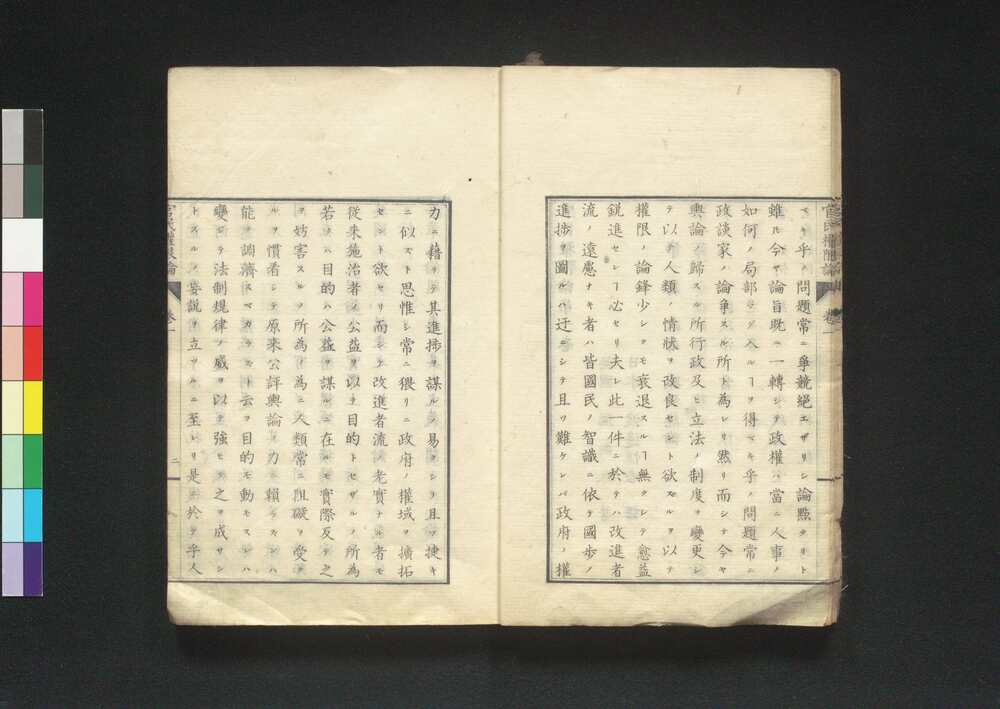 ベキ乎ノ問題常ニ爭競絕エザリシ論點タリト
雖𪜈今ヤ論旨既ニ一轉シテ政權ハ當ニ人事ノ
如何ノ局部ニマデ入ルヿヲ得ベキ乎ノ問題常ニ
政談家ノ論爭スル所ト為レリ然リ而シテ今ヤ
輿論ノ歸スル所行政及ヒ立法ノ制度ヲ變更シ
テ以テ人類ノ情狀ヲ改良セント欲スルヲ以テ
權限ノ論鋒少シクモ衰退スルヿ無クシテ愈益
銳進センヿ必セリ夫レ此一件ニ於テハ改進者
流ノ遠慮ナキ者ハ皆國民ノ智識ニ依テ國步ノ
進捗ヲ圖ルハ迂ニシテ且ツ難ケレバ政府ノ權
官民權限論 卷一
力ニ藉リテ其進捗ヲ謀ルノ易クシテ且ツ捷キ
ニ似スト思惟シ常ニ猥リニ政府ノ權域ヲ擴拓
セント欲セリ而シテ改進者流ノ老實ナル者モ
從来施治者ノ公益ヲ以テ目的トセザルノ所為
若クハ目的ハ公益ヲ謀ルニ在ルモ實際反テ之
ヲ妨害スルノ所為ノ為ニ人類常ニ阻礙ヲ受ク
ルヲ慣看シテ原来公評輿論ノ力ニ賴ラズンハ
能ク調濟スベカラズト云ヲ目的モ動モスレハ
變シテ法制規律ノ威ヲ以テ強ヒテ之ヲ成サン
トスルノ妄說ヲ立ツルニ至レリ是ニ於テ乎人
官民權限論 卷一 二